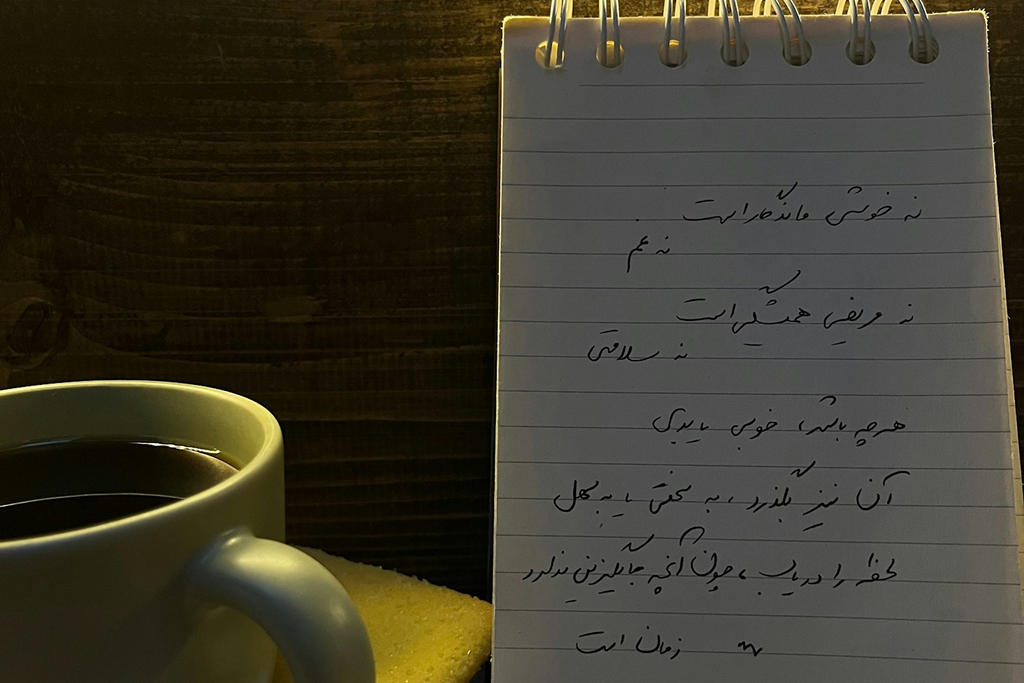 نه خوشی ماندگار است
نه غم
نه مریضی همیشگی است
نه سلامتی
هرچه باشد، خوبی یا بدی
آن نیز بگذرد، به سختی یا به سهل
لحظه را دریاب، چون آنچه جایگزینی ندارد
زمان است